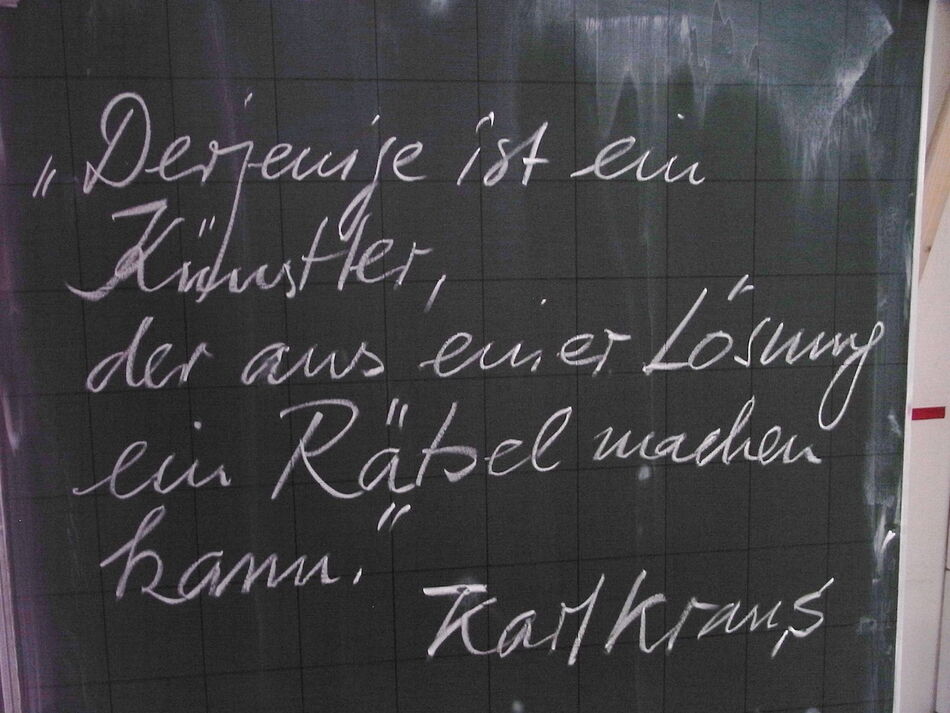 „Derjenige ist ein
Künstler,
der aus einer Lösung
ein Rätsel machen
kann."
Karl Kraus